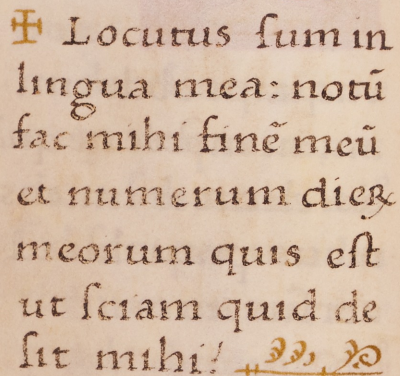 ✠ Locutus ſum in
lingua mea: notū
fac mihi finē meū
et numerum dieꝝ
meorum quis eſt
ut ſciam quid de
ſit mihi!